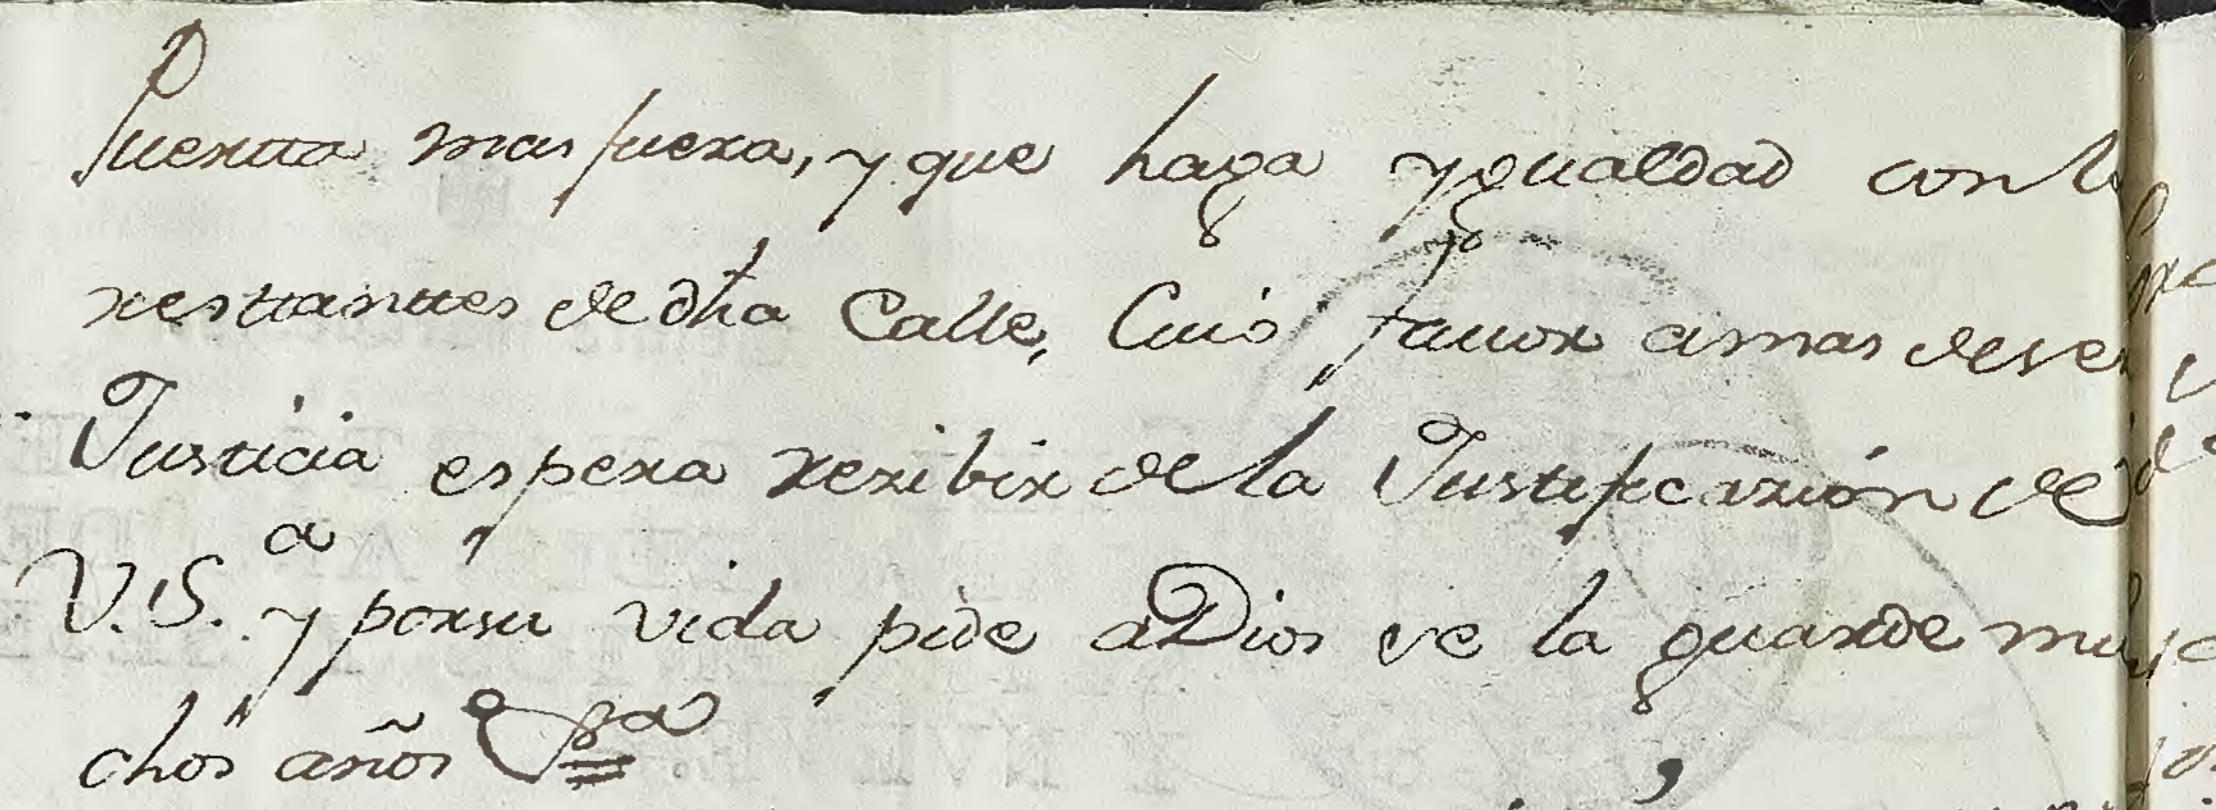 Puerta mas fuera, y que haga ygualdad con l
restantes de dha Calle, Cuio favor a mas de ser
Justicia espera rezibir de la Justificazión de
V.S.ª y por su vida pide a Dios se la guarde mu
chos años &ª